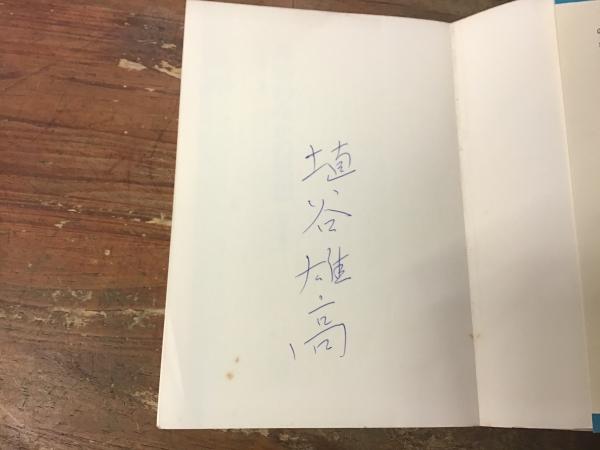 埴谷雄高